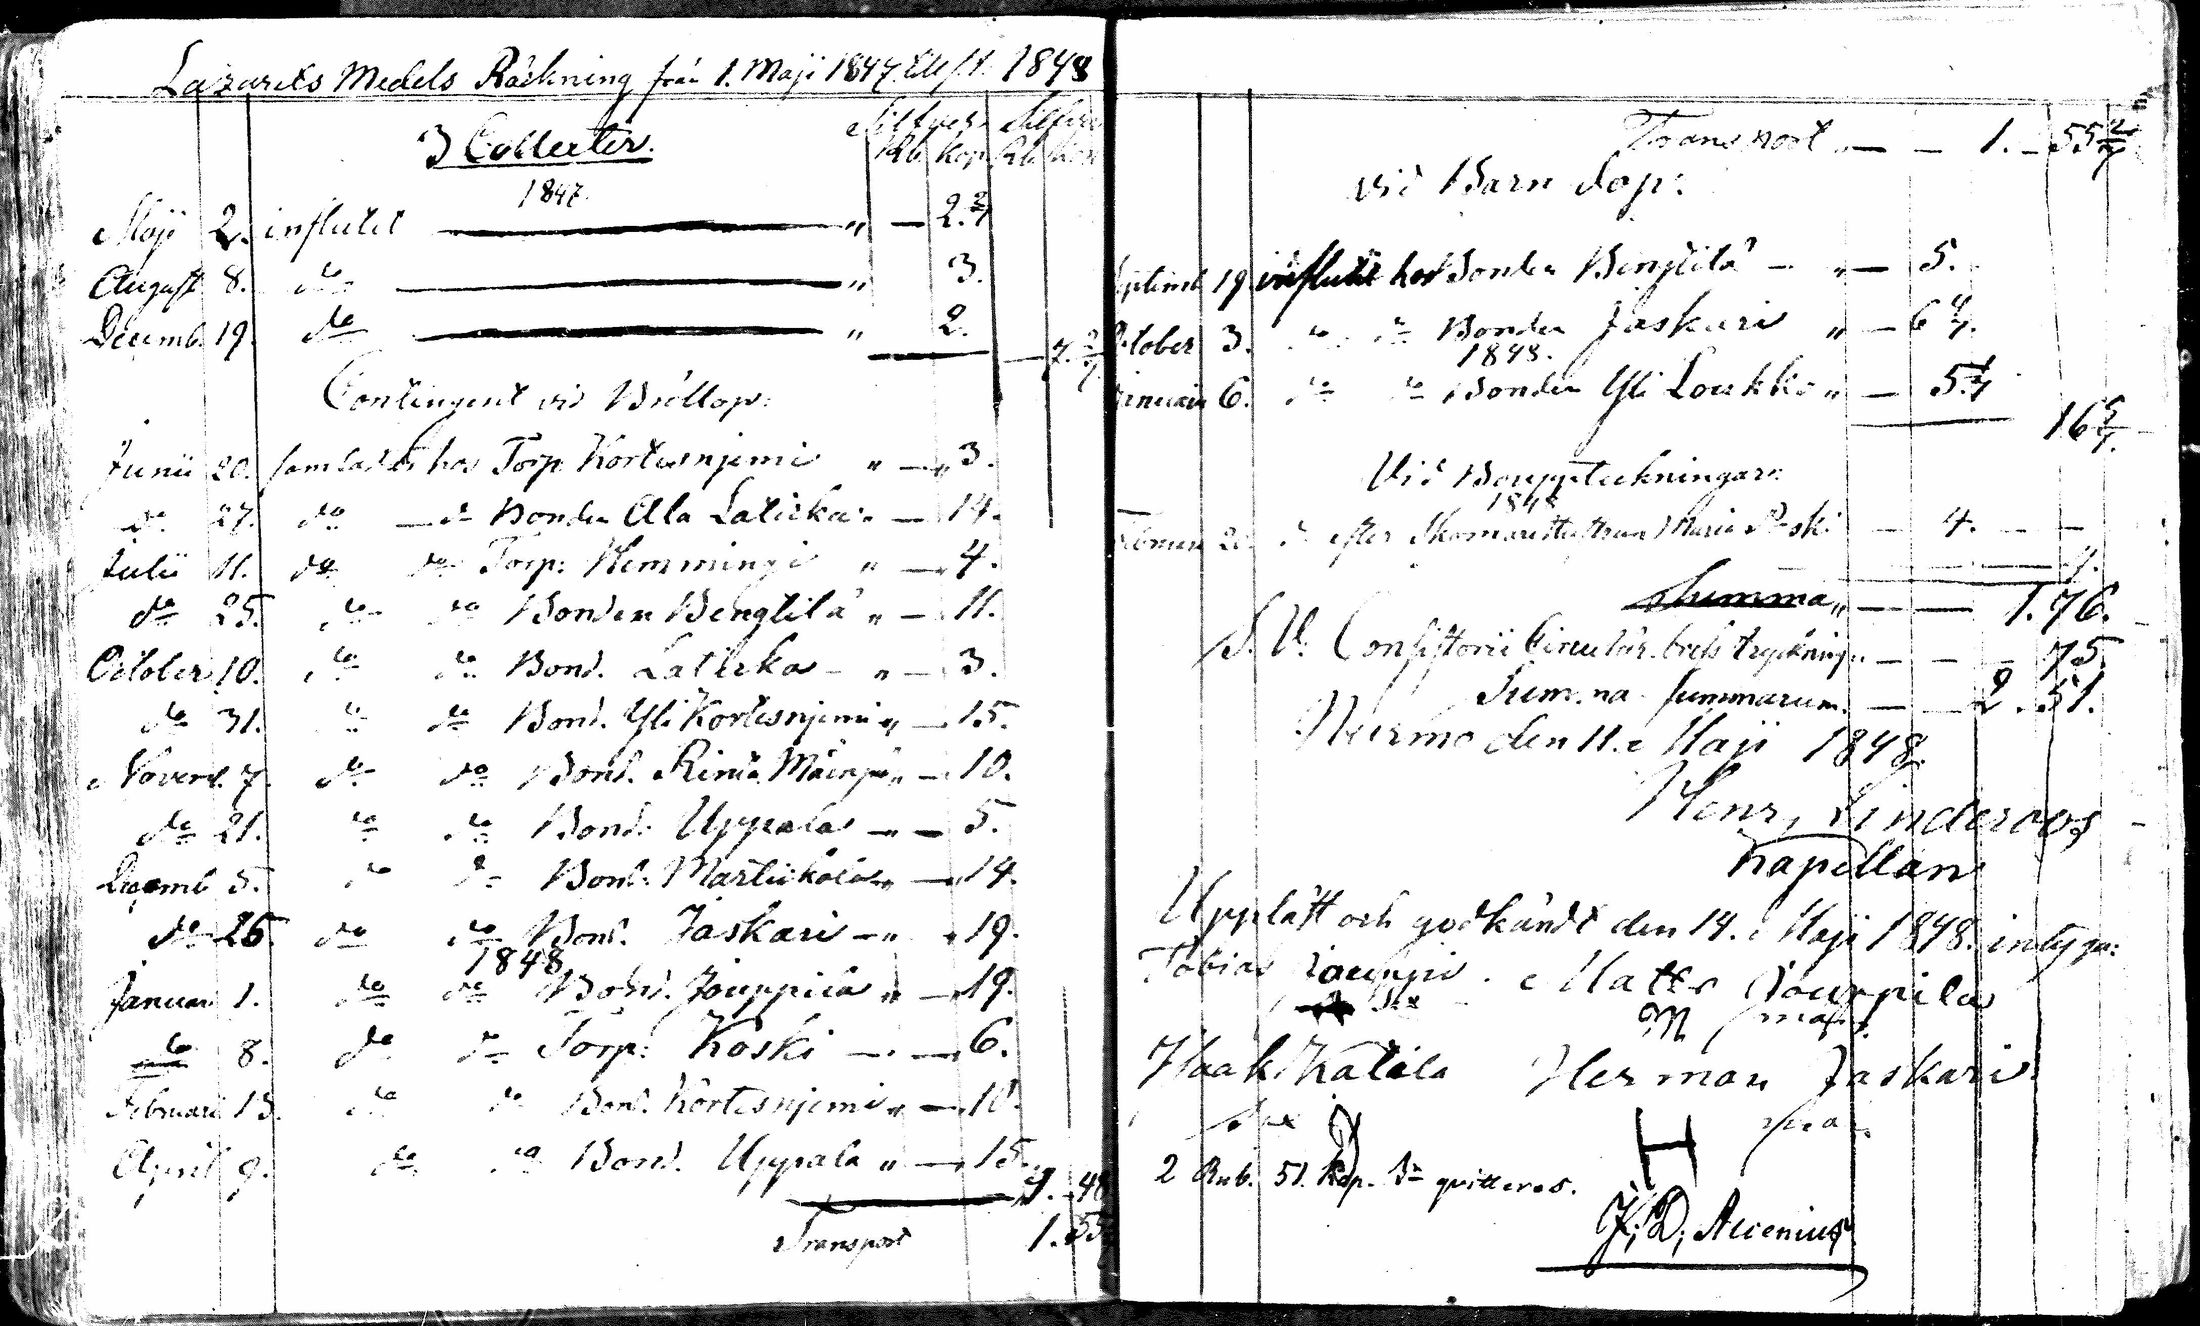 Lazarets Medels Räkning från 1. Maji 1847 till 1848
Silfver Silfver
3 Collecter. Rb. Kop. Rb. Kop
1847.
Maji 2. influtit " — 2. 2/7
August 8. do " 3.
Decemb. 19. do " 2.
— 7. 2/7
Contingent vid Bröllop:
Junii 20. samlades hos Torp. Kortesnjemi " — " 3.
do 27. do — do Bonden Ala Laticka " — 14.
Julii 11. do do Torp: Hemmingi " — 4.
do 25. do do Bonden Bengtilä " — 11.
October 10. do do Bond. Laticka — " — 3.
do 31. do do Bond. Yli Kortesnjemi " — 15.
Novemb. 7. do do Bond. Rinta Mäenpä " — 10.
do 21. do do Bond. Uppala — " — 5.
Decemb. 5. do do Bond. Martickala " — 14.
do 26. do do Bond. Jaskari — " 19.
1848
Januari 1. do do Bond. Jouppila " — 19.
do 8. do do Torp: Koski — " — 6.
Februari 13. do do Bond. Kortesnjemi " — 10.
April 9. do do Bond. Uppala " — 15.
1. 48
Transport 1. 55
Transport — — 1. — 55 2/7
vid Barn Dop:
Septemb 19. influtit hos Bonden Bengtilä — " — 5.
October 3. do do Bonden Jaskari " — 6 4/7.
1848.
Januari 6. do do Bonden Yli Loukko " — 5 1/7
16 5/7.
Vid Bouppteckningar:
1848
Februari 20. do efter Skomarehustrun Maria Koski — 4. — —
4.
Summa " — — 1. 76.
S. V. Consistorii Circulär brefs tryckning " — — 75.
Summa summarum — — 2. 51.
Nurmo den 11. Maji 1848.
Henr. Linderoos
Kapellan
Uppläst och godkändt den 14. Maji 1848. intyga:
Tobias Jouppi. Matts Jouppila
M
Isaak Katila Herman Jaskari
H
2 Rub. 51. Kop. Sr qvitteras.
J. D. Alcenius